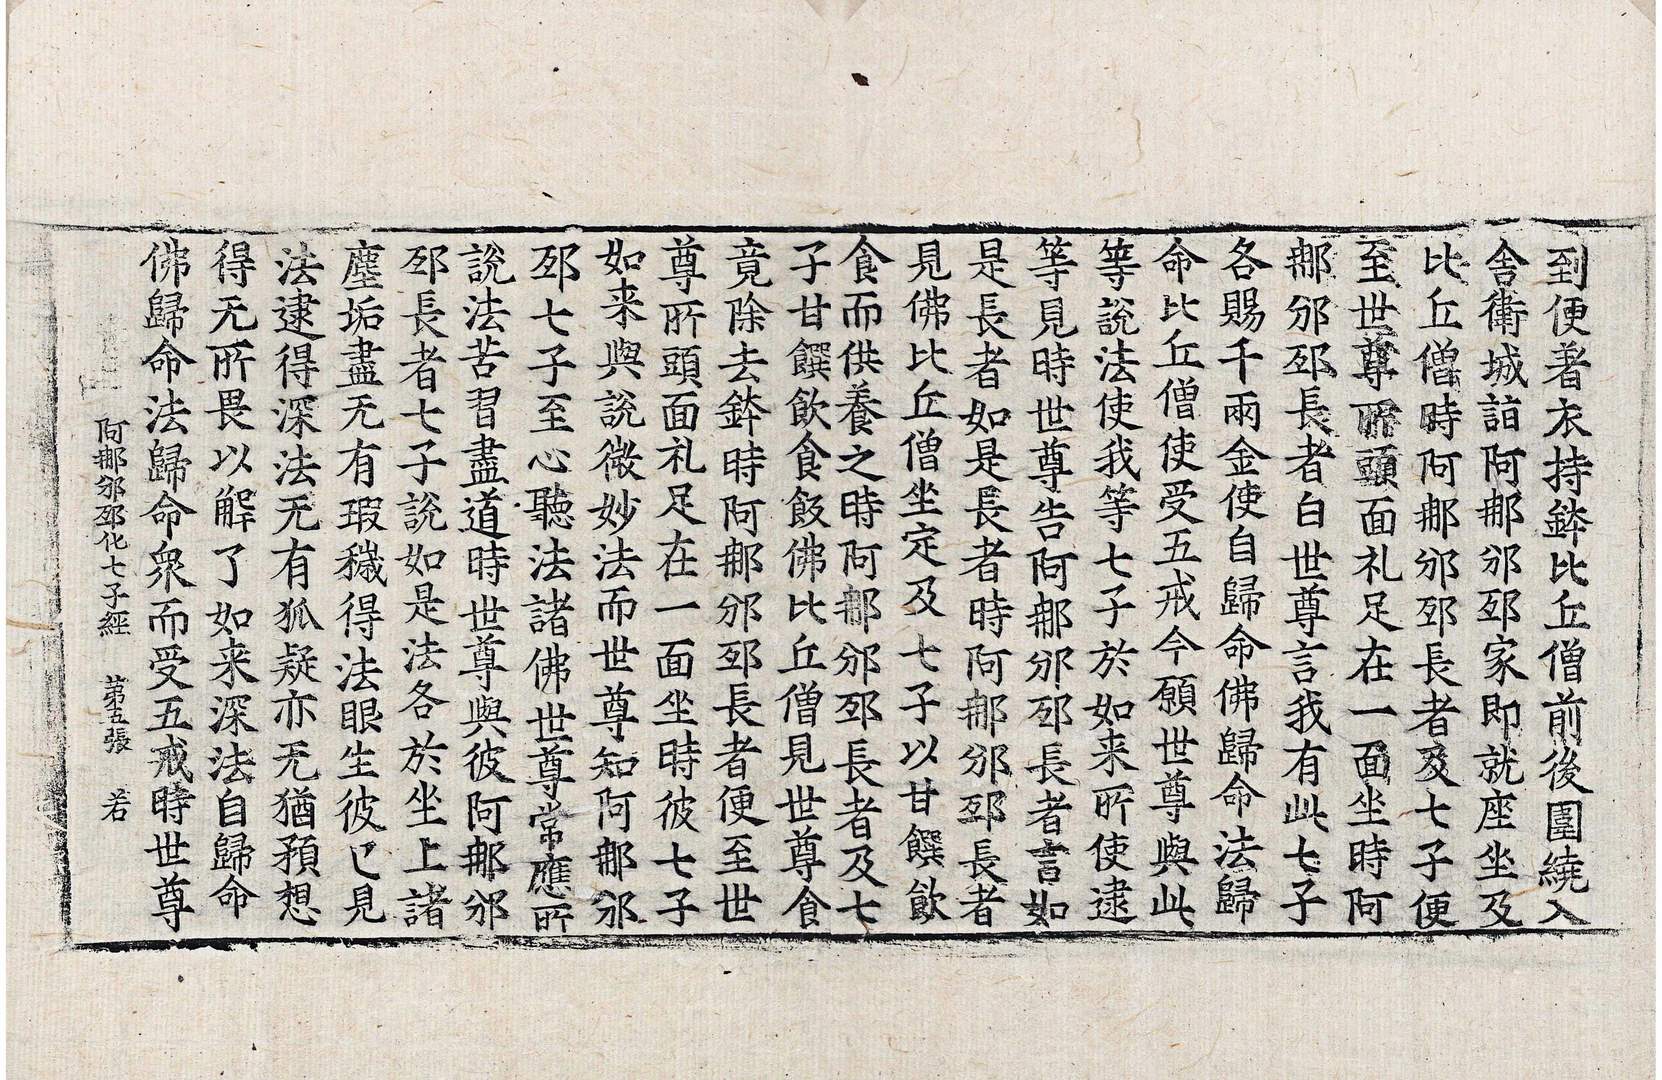 到便著衣持鉢比丘僧前後圍繞入
舍衛城詣阿那邠邳家即就座坐及
比丘僧時阿那邠邳長者及七子便
至世尊所頭面礼足在一面坐時阿
那邠邳長者白世尊言我有此七子
各賜千兩金使自歸命佛歸命法歸
命比丘僧使受五戒今願世尊與此
等說法使我等七子於如来所使逮
等見時世尊告阿那邠邳長者言如
是長者如是長者時阿那邠邳長者
見佛比丘僧坐定及七子以甘饌飲
食而供養之時阿那邠邳長者及七
子甘饌飲食飯佛比丘僧見世尊食
竟除去鉢時阿那邠邳長者便至世
尊所頭面礼足在一面坐時彼七子
如来與說微妙法而世尊知阿那邠
邳七子至心聽法諸佛世尊常應所
說法苦習盡道時世尊與彼阿那邠
邳長者七子說如是法各於坐上諸
塵垢盡无有瑕穢得法眼生彼已見
法逮得深法无有狐疑亦无猶預想
得无所畏以解了如来深法自歸命
佛歸命法歸命衆而受五戒時世尊
阿那邠邳化七子經 第五張 若